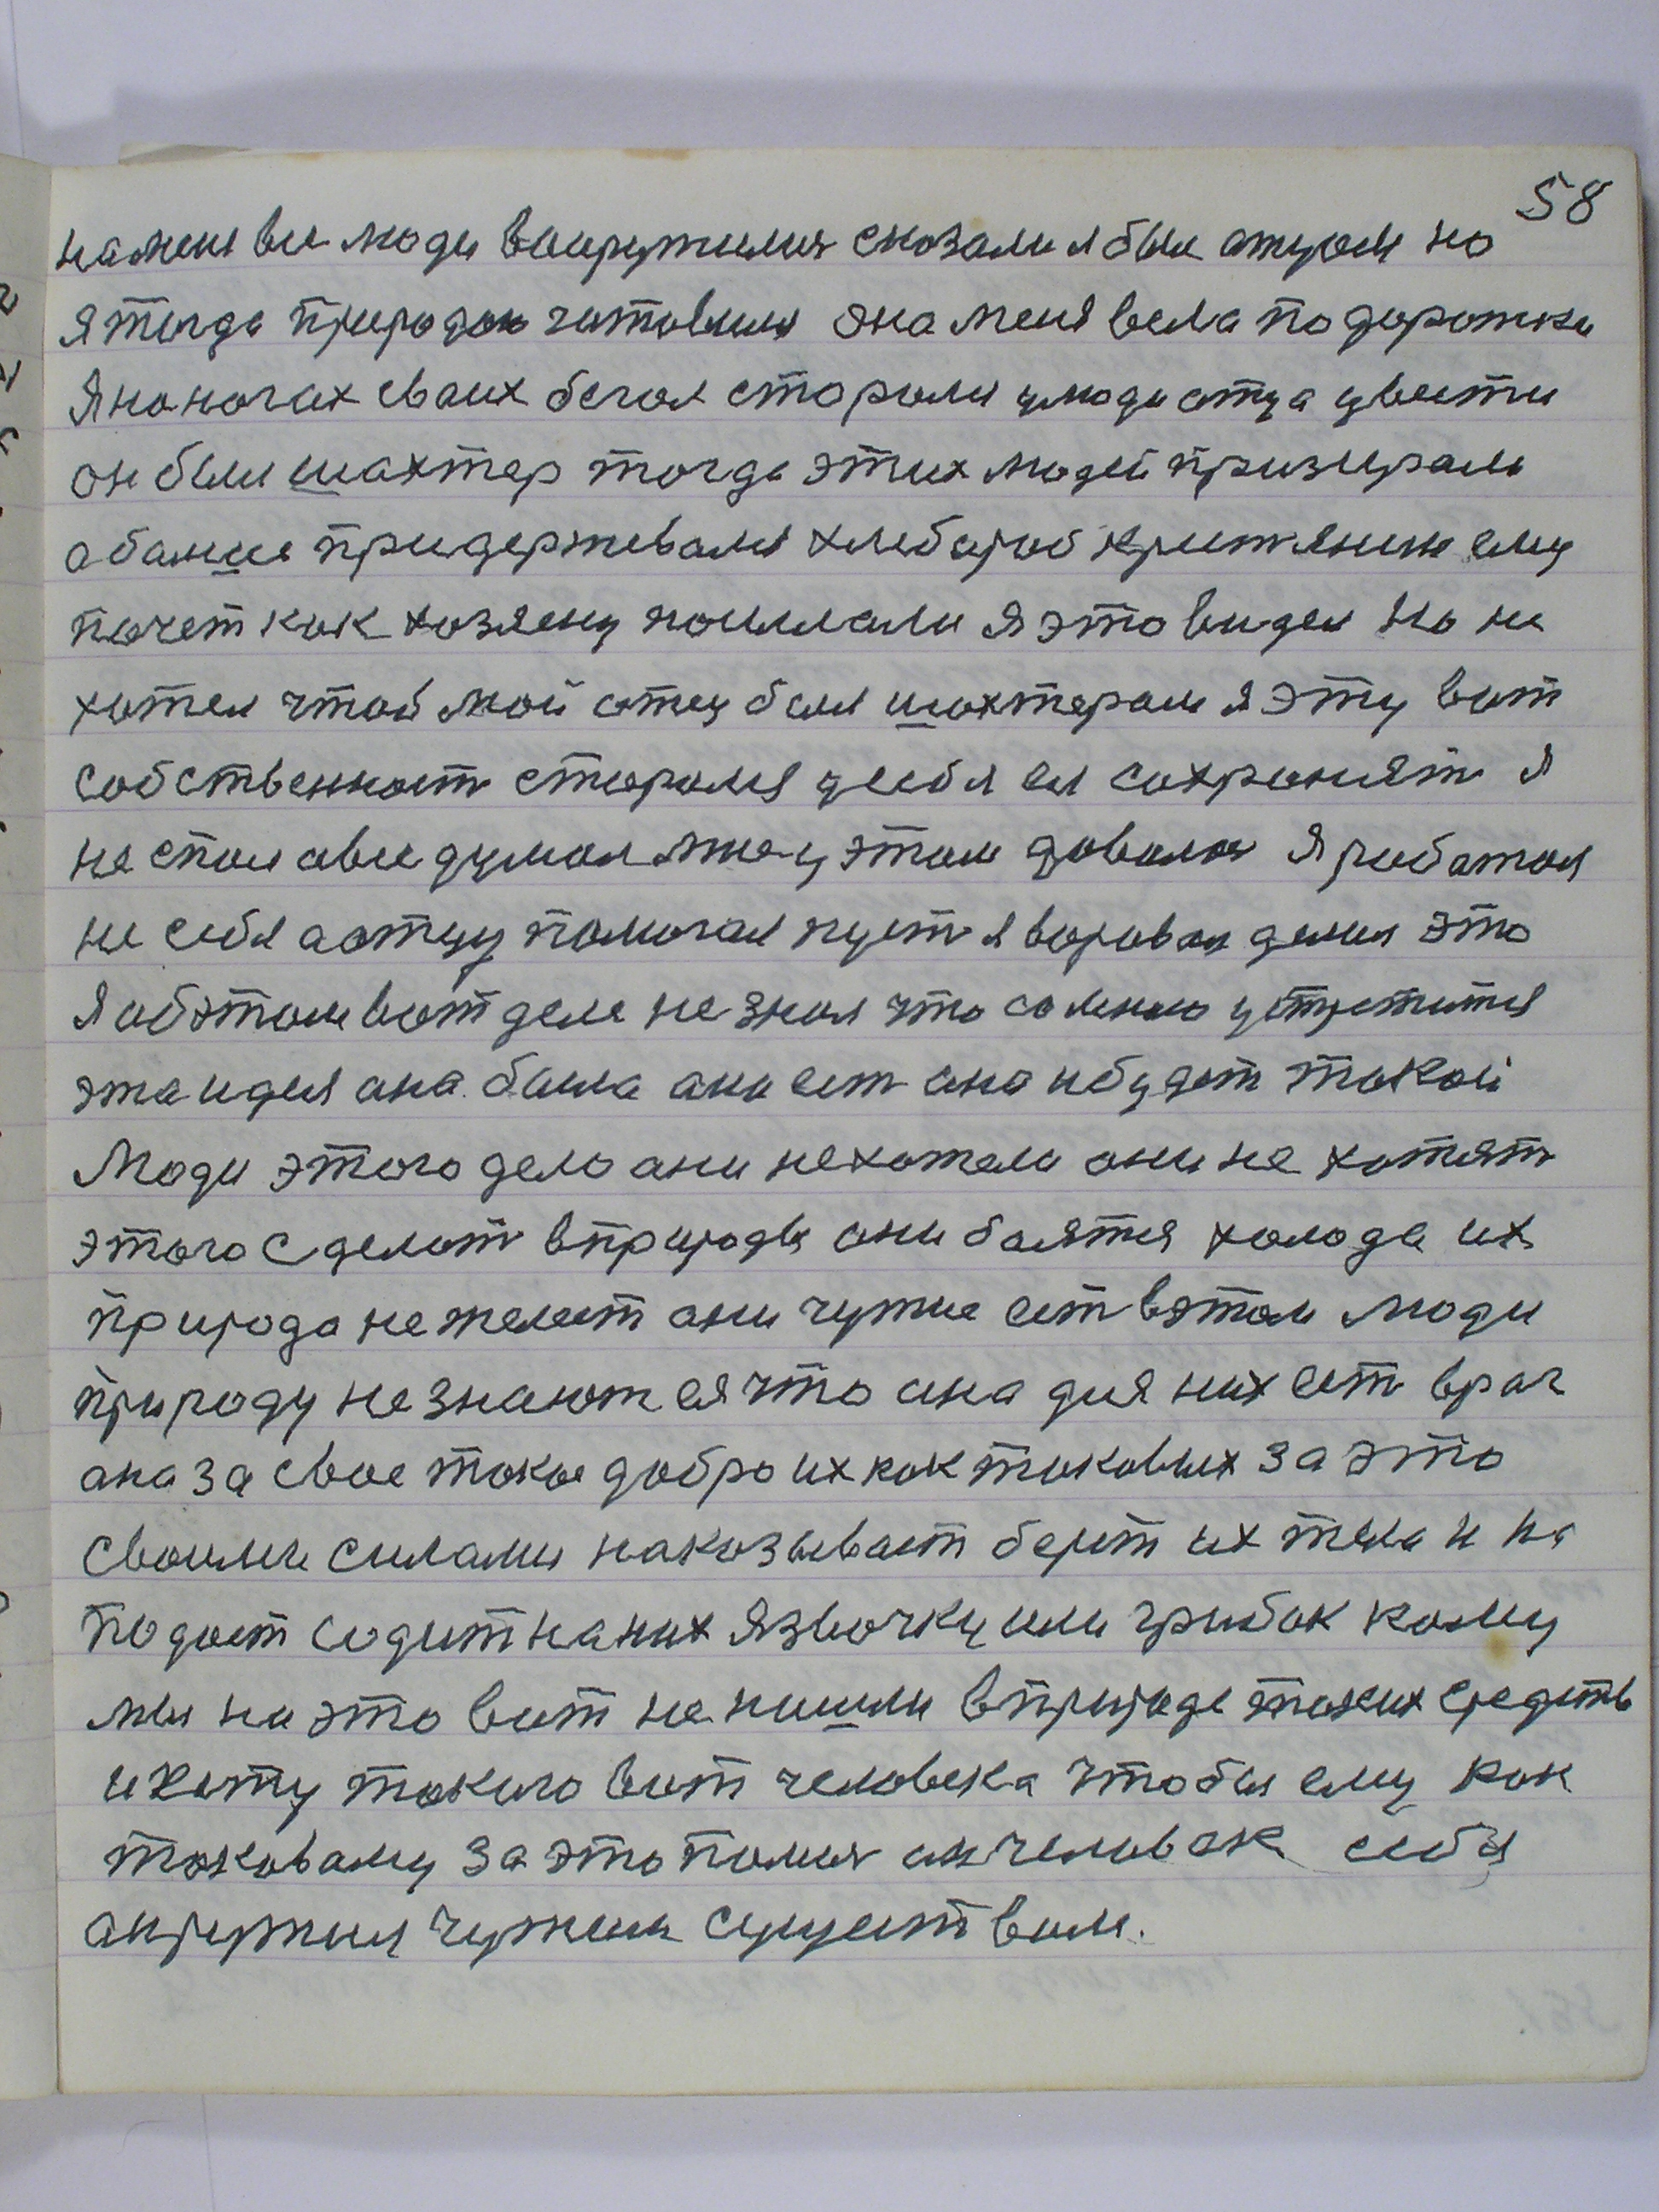 58
намене все люди воаружилися сказали я был отцом но
я тогда природою готовился она меня вела по дорожки
Я на ногах сваих бегал старался улюди отца увести
он был шахтер тогда этих людей призирали
а больше придержевался хлебароб кристянин ему
почет как хозяену посилали я это видел но не
хотел чтоб мой отец был шахтером я эту вот
собственност старался усебя ея сохранят я
не спал авсе думал мне у этом довалос я работал
не себя а отцу помогал пуст я воровал делил это
я обэтом вот деле не знал что самною устретится
эта идея она была она ест она ибудет такой
Люди этого дела ани нехотели они не хотят
этого сделат вприроде они баятся холода их
природа не желает они чужие ест вэтом люди
природу не знают ея что она для них ест враг
ана за свое такое добро их как таковых за это
своими силами наказывает берет их тела и на
подает содит на них язвочку или грибок кому
мы на это вот не нашли вприроде таких средств
и нету такого вот человека чтобы ему как
таковаму за это помог он человек себя
акружил чужим существом.